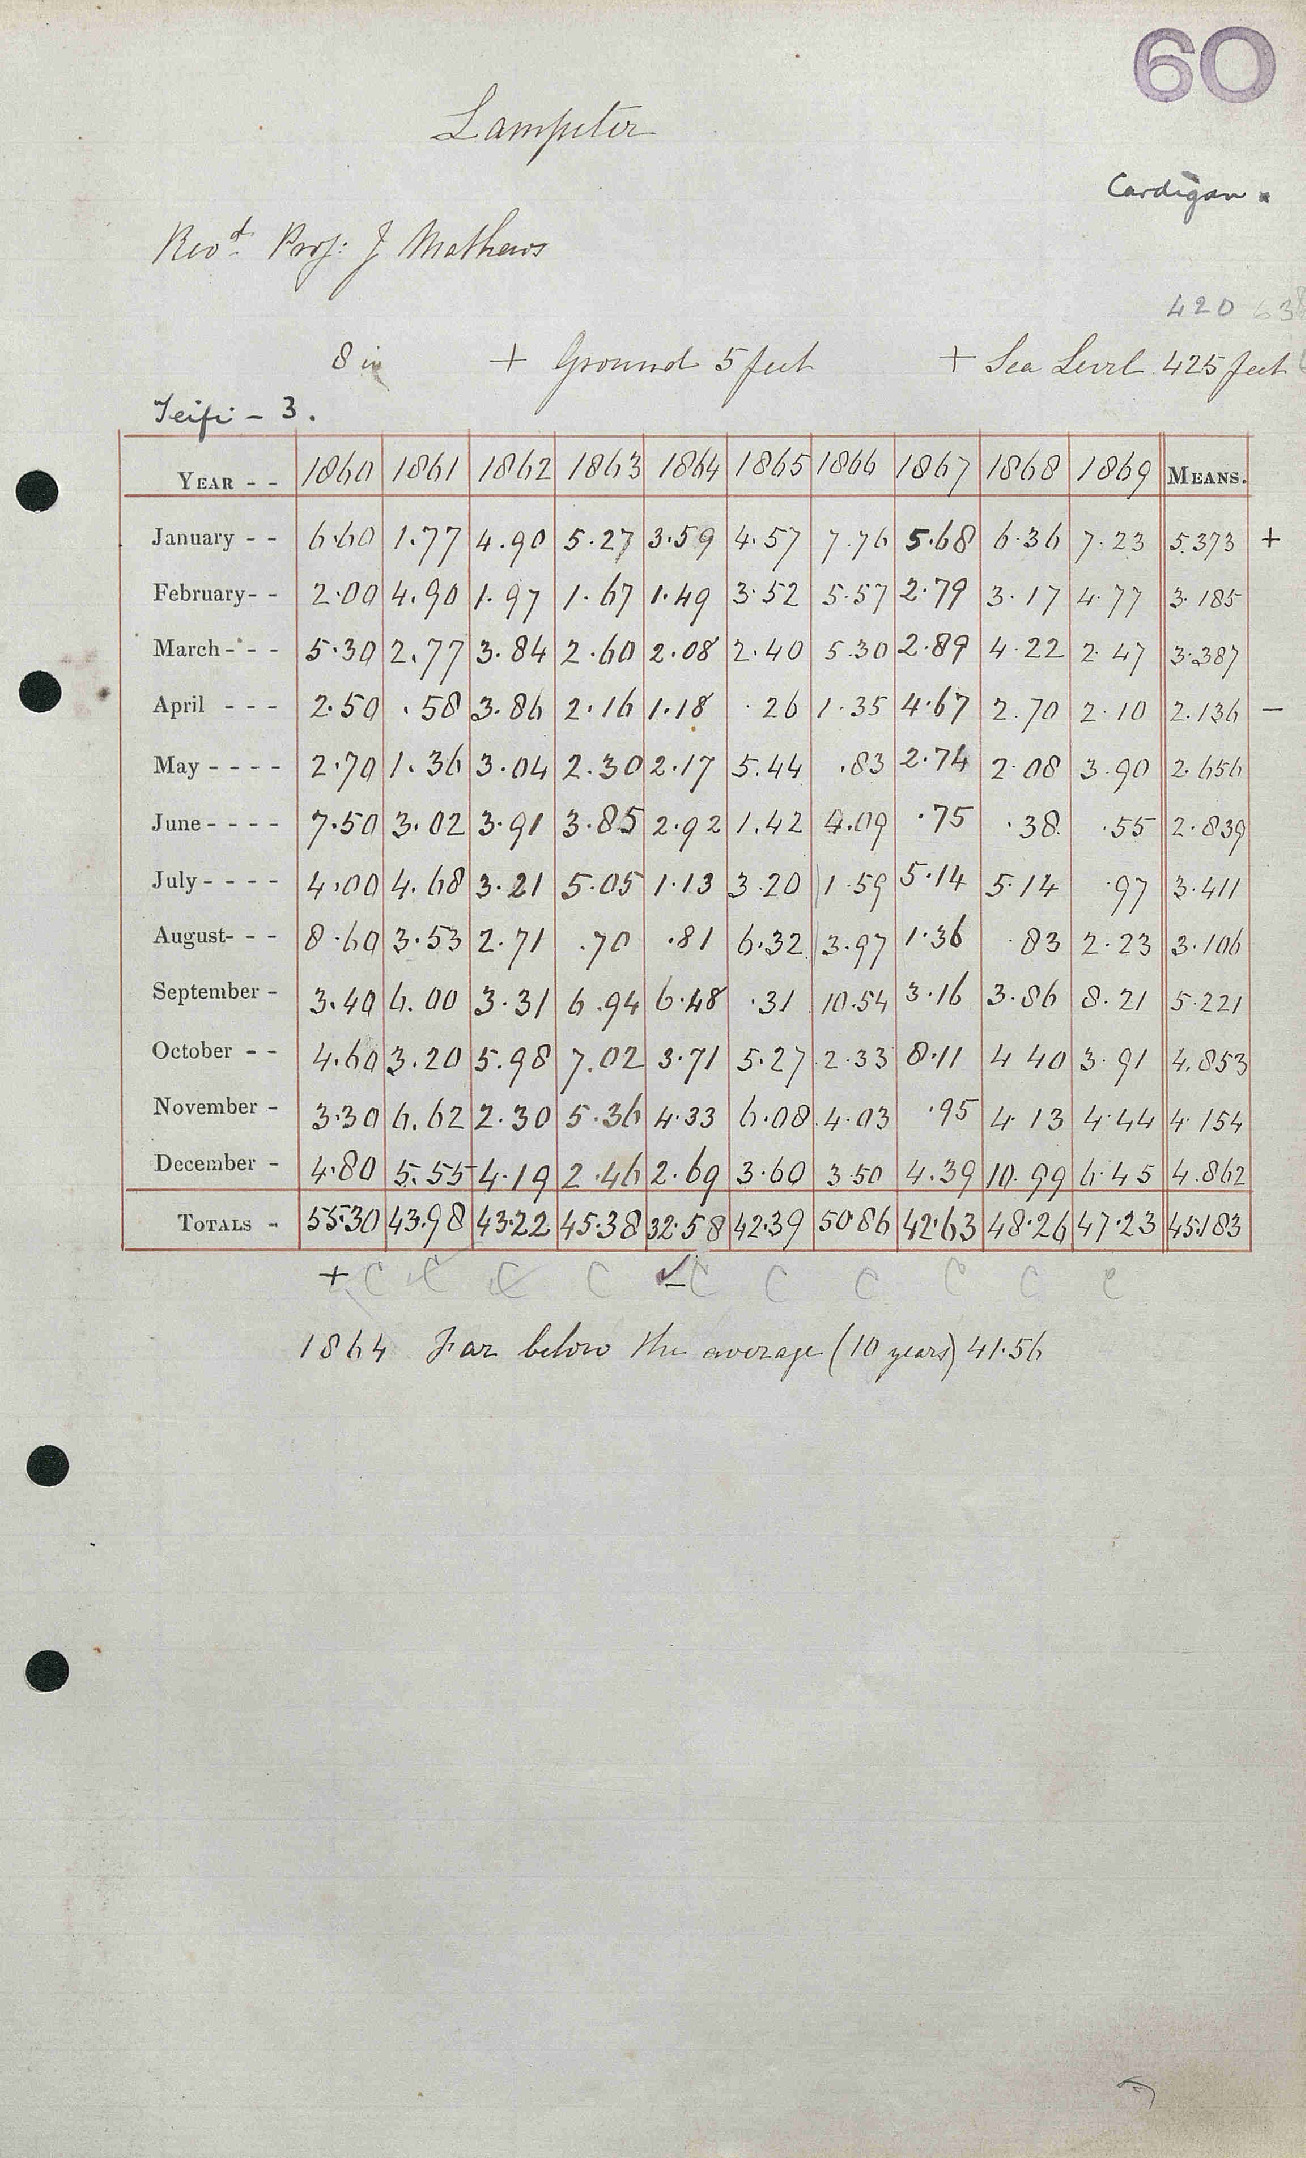 60
Lampeter
Cardigan.
Revd. Prof: J Mathews
420
8 in + Ground 5 feet + Sea Level 425 feet
Teifi - 3.
YEAR - - 1860 1861 1862 1863 1864 1865 1866 1867 1868 1869 MEANS.
January - - 6.60 1.77 4.90 5.27 3.59 4.57 7.76 5.68 6.36 7.23 5.373 +
February - - 2.00 4.90 1.97 1.67 1.49 3.52 5.57 2.79 3.17 4.77 3.185
March - - - 5.30 2.77 3.84 2.60 2.08 2.40 5.30 2.89 4.22 2.47 3.387
April - - - 2.50 .58 3.86 2.16 1.18 .26 1.35 4.67 2.70 2.10 2.136 -
May - - - - 2.70 1.36 3.04 2.30 2.17 5.44 .83 2.74 2.08 3.90 2.656
June - - - - 7.50 3.02 3.91 3.85 2.92 1.42 4.09 .75 .38 .55 2.839
July - - - - 4.00 4.68 3.21 5.05 1.13 3.20 1.59 5.14 5.14 .97 3.411
August - - - 8.60 3.53 2.71 .70 .81 6.32 3.97 1.36 .83 2.23 3.106
September - 3.40 6.00 3.31 6.94 6.48 .31 10.54 3.16 3.86 8.21 5.221
October - - 4.60 3.20 5.98 7.02 3.71 5.27 2.33 8.11 4.40 3.91 4.853
November - 3.30 6.62 2.30 5.36 4.33 6.08 4.03 .95 4.13 4.44 4.154
December - 4.80 5.55 4.19 2.46 2.69 3.60 3.50 4.39 10.99 6.45 4.862
TOTALS - 55.30 43.98 43.22 45.38 32.58 42.39 50.86 42.63 48.26 47.23 45.183
+ C C C C - C C C C C C
1864 Far below the average (10 years) 41.56